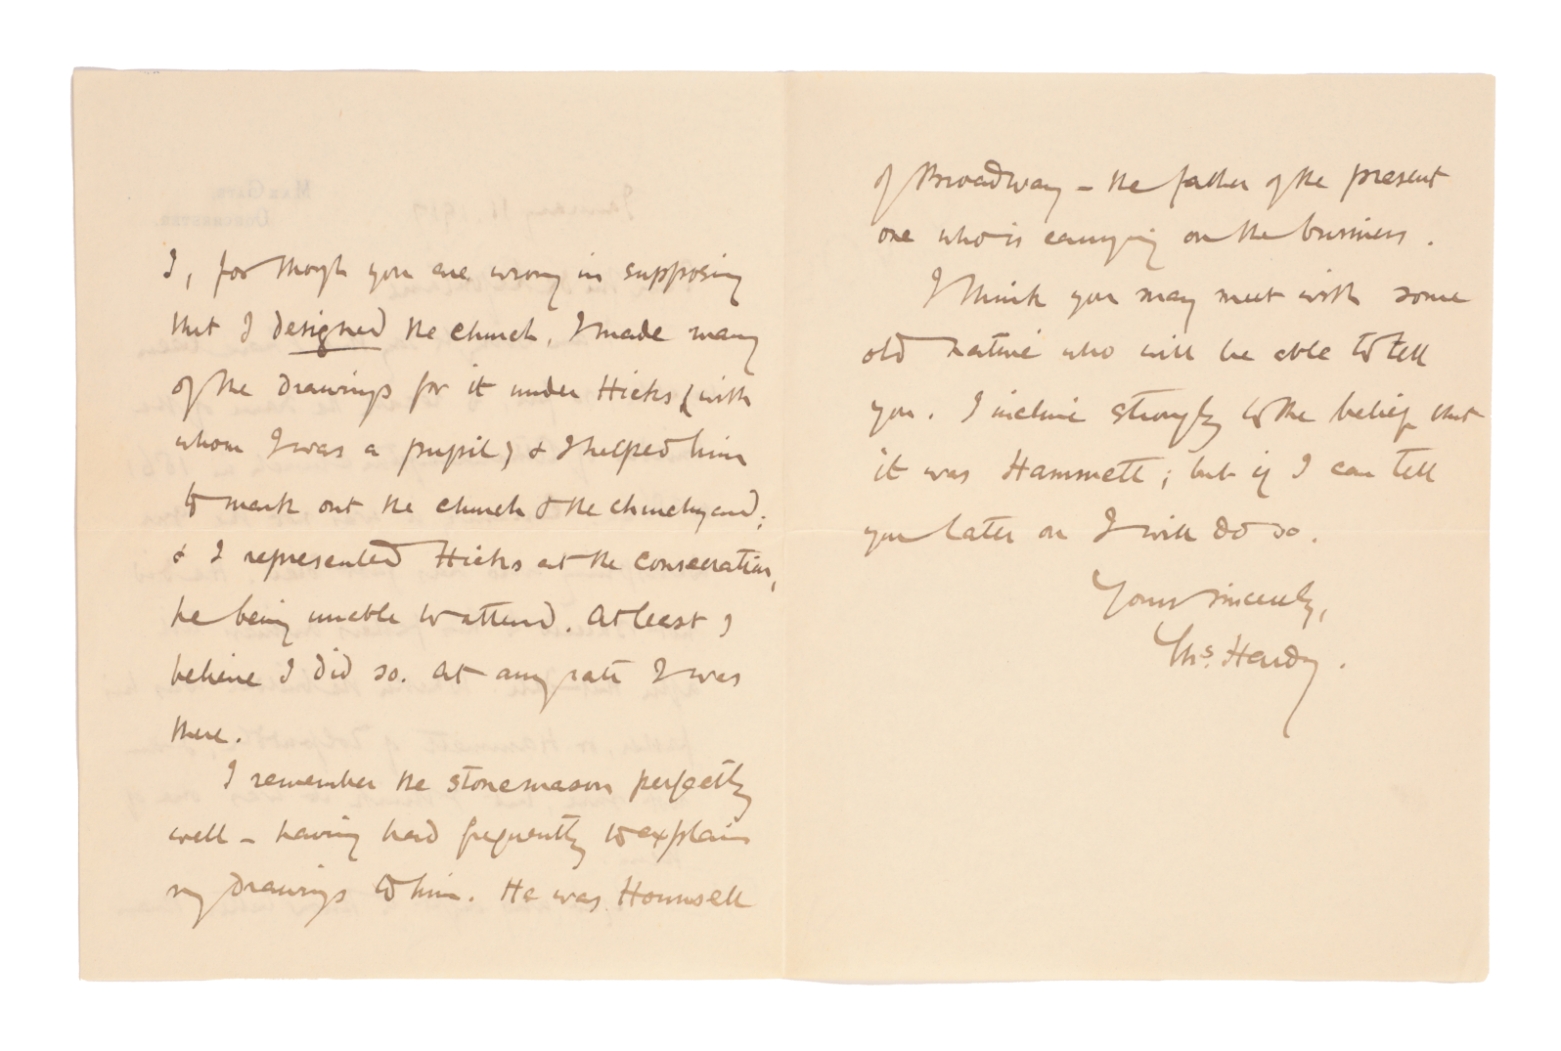 I, for though you are wrong in supposing
that I designed the church, I made many
of the drawings for it under Hicks (with
whom I was a pupil) & I helped him
to mark out the church & the churchyard;
& I represented Hicks at the consecration,
he being unable to attend. At least I
believe I did so. At any rate I was
there.
I remember the stonemason perfectly
well – having had frequently to explain
my drawings to him. He was Hounsell
of Broadway – the father of the present
one who is carrying on the business.
I think you may meet with some
old native who will be able to tell
you. I incline strongly to the belief that
it was Hammett; but if I can tell
you later on I will do so.
Yours sincerely,
Ths. Hardy.
MAX GATE,
DORCHESTER.
January 16, 1917